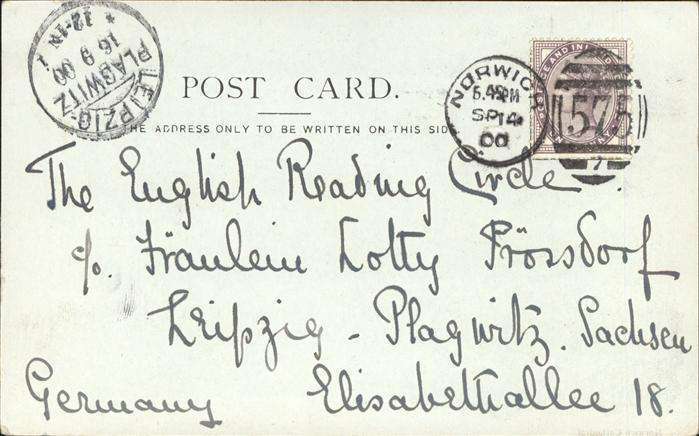 LEIPZIG-
PLAGWITZ
16 9 00
* 12-1N
POST CARD.
THE ADDRESS ONLY TO BE WRITTEN ON THIS SIDE
NORWICH
6.45PM
SP 14
00
575
7
The English Reading Circle.
c/o. Fräulein Lotty Prössdorf
Leipzig - Plagwitz. Sachsen
Germany Elisabethallee 18.